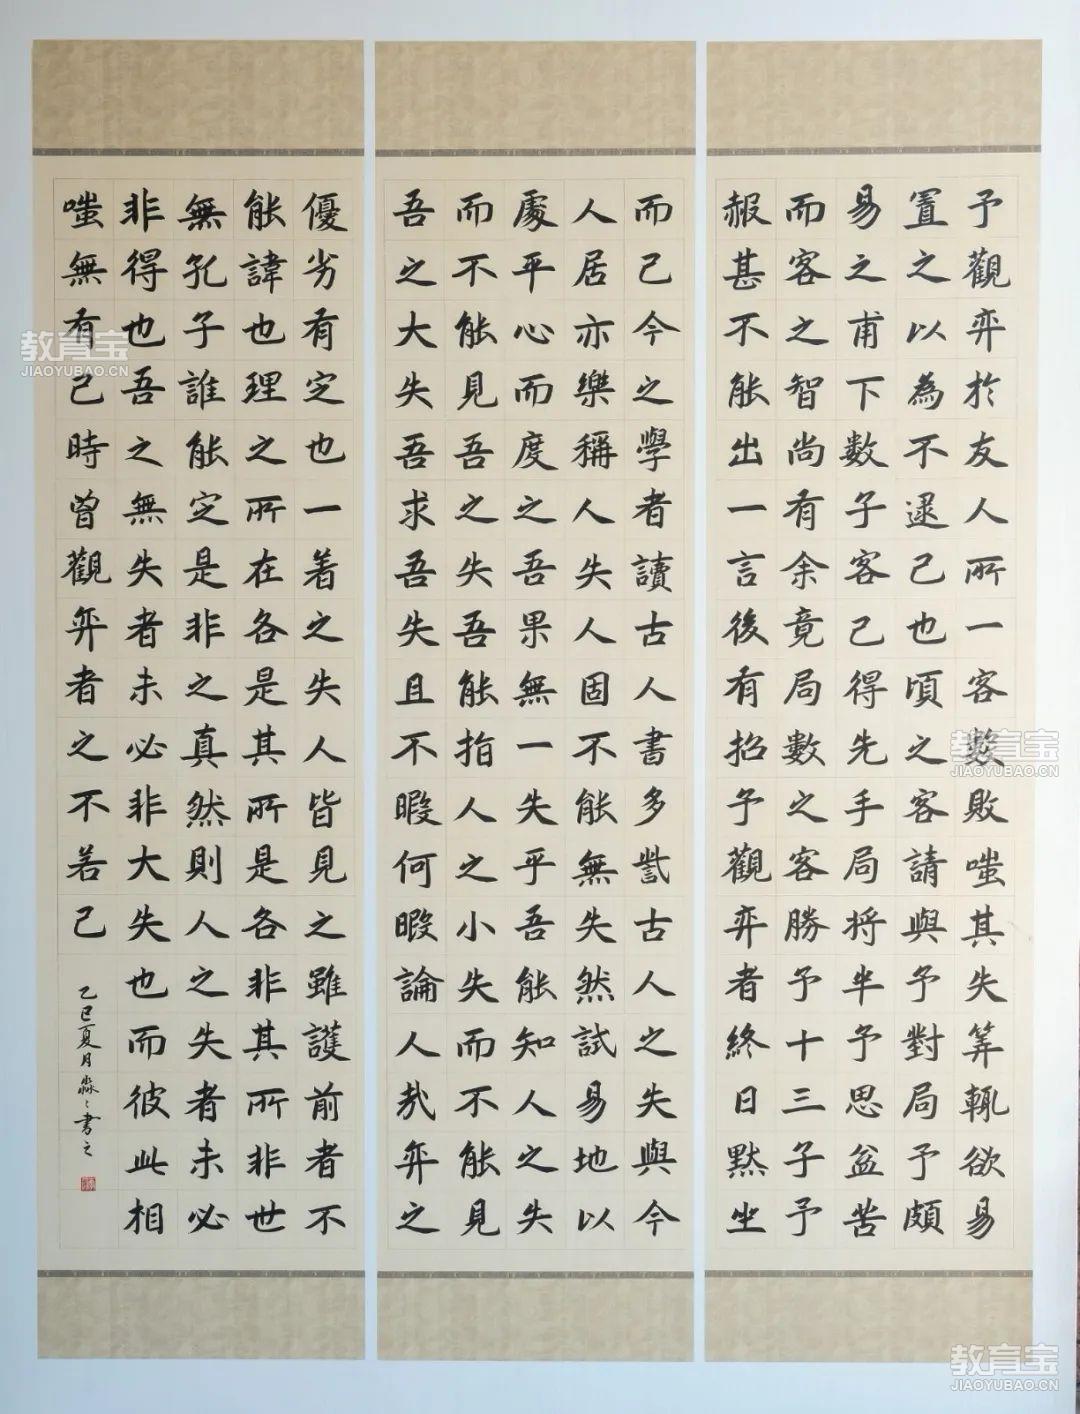 予觀弈於友人所一客數敗嗤其失筭輒欲易
置之以為不逮己也頃之客請與予對局予頗
易之甫下數子客已得先手局將半予思益苦
而客之智尚有余竟局數之客勝予十三子予
赧甚不能出一言後有招予觀弈者終日默坐
而已今之學者讀古人書多訾古人之失與今
人居亦樂稱人失人固不能無失然試易地以
處平心而度之吾果無一失乎吾能知人之失
而不能見吾之失吾能指人之小失而不能見
吾之大失吾求吾失且不暇何暇論人哉弈之
優劣有定也一着之失人皆見之雖護前者不
能諱也理之所在各是其所是各非其所非世
無孔子誰能定是非之真然則人之失者未必
非得也吾之無失者未必非大失也而彼此相
嗤無有已時曾觀弈者之不若已
乙巳夏月淼々書之
教育宝
JIAOYUBAO.CN
教育宝
JIAOYUBAO.CN
教育宝
JIAOYUBAO.CN